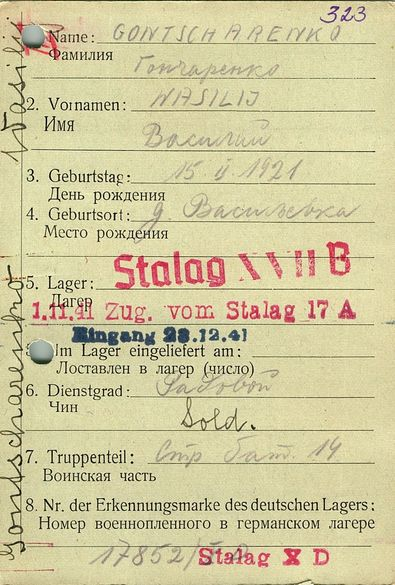 323
Name: GONTSCHARENKO
Фамилия Гончаренко
2. Vornamen: WASILIJ
Имя Василий
3. Geburtstag: 15 II 1921
День рождения
4. Geburtsort: д. Васильевка
Место рождения
5. Lager: Stalag XVII B
Лагер
1.11.41 Zug. vom Stalag 17 A
Eingang 23.12.41
Im Lager eingeliefert am:
Доставлен в лагер (число)
6. Dienstgrad: Рядовой
Чин Sold.
7. Truppenteil: Стр бат. 14
Воинская часть
8. Nr. der Erkennungsmarke des deutschen Lagers:
Номер военнопленного в германском лагере
17852/ Stalag X D
Gontscharenko Wasilij